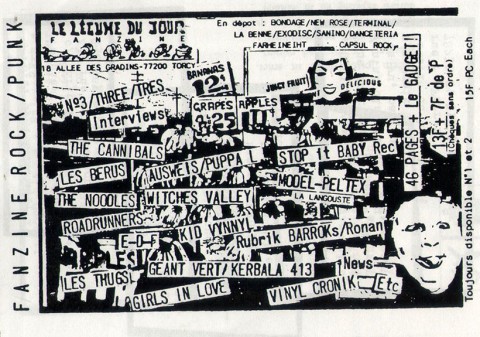 FANZINE ROCK/PUNK
LE LEGUME DU JOUR
FANZINE
18 ALLEE DES GRADINS-77200 TORCY
En dépot : BONDAGE/NEW ROSE/TERMINAL/
LA BENNE/EXODISC/SANINO/DANCETERIA
FARHEINEIHT CAPSUL ROCK,
N°3/THREE/TRES
Interviews
BANANAS
12¢
JUICY FRUIT
DELICIOUS
GRAPES
25
APPLES
THE CANNIBALS
AUSWEIS/PUPPA L
STOP it BABY Rec
LES BERUS
MODEL-PELTEX
LA LANGOUSTE
THE NOODLES
WITCHES VALLEY
ROADRUNNERS
KID VYNNYL
Rubrik BARROKs/Ronan
E-D-F
GEANT VERT/KERBALA 413
News
LES THUGS
GIRLS IN LOVE
VINYL CRONIK
Etc
46 PAGES + Le GADGET!
13F + 7F de P
(Chèques sans ordre)
15F PC Each
Toujours disponible N°1 et 2